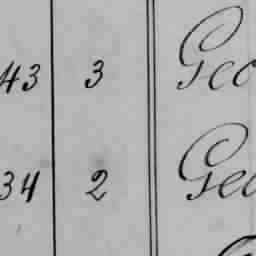 43 3 Geo
34 2 Geo